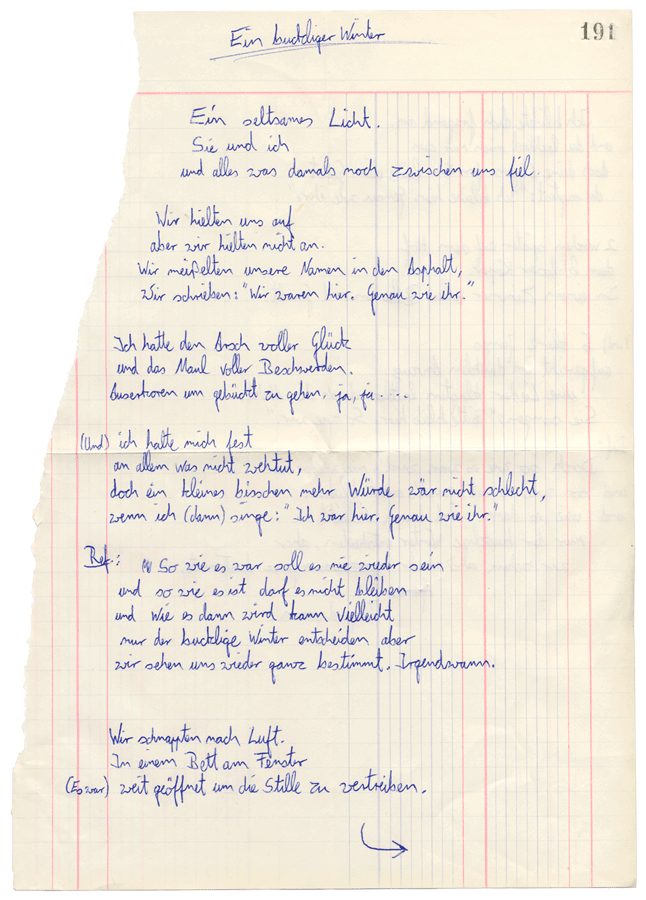 Ein buckliger Winter
191
Ein seltsames Licht.
Sie und ich
und alles was damals noch zwischen uns fiel
Wir hielten uns auf
aber wir hielten nicht an.
Wir meißelten unsere Namen in den Asphalt,
Wir schrieben: "Wir waren hier. Genau wie ihr."
Ich hatte den Arsch voller Glück
und das Maul voller Beschwerden.
Auserkoren um gebückt zu gehen, ja, ja...
(Und) ich halte mich fest
an allem was nicht wehtut,
doch ein kleines bisschen mehr Würde wär nicht schlecht,
wenn ich (dann) singe: "Ich war hier. Genau wie ihr."
Ref.: So wie es war soll es nie wieder sein
und so wie es ist darf es nicht bleiben
und wie es dann wird kann vielleicht
nur der bucklige Winter entscheiden aber
wir sehen uns wieder ganz bestimmt. Irgendwann.
Wir schnappten nach Luft.
In einem Bett am Fenster
(Es war) weit geöffnet um die Stille zu vertreiben.